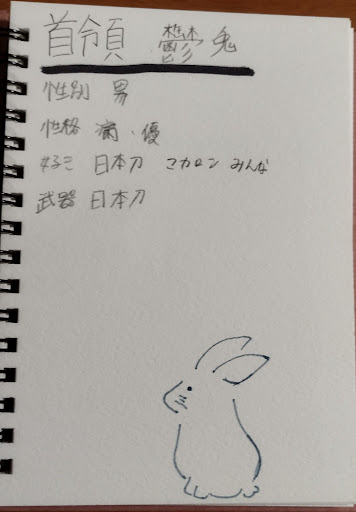 首領 鬱兎
性別 男
性格 病・優
好きこ 日本刀 マカロン みんな
武器 日本刀